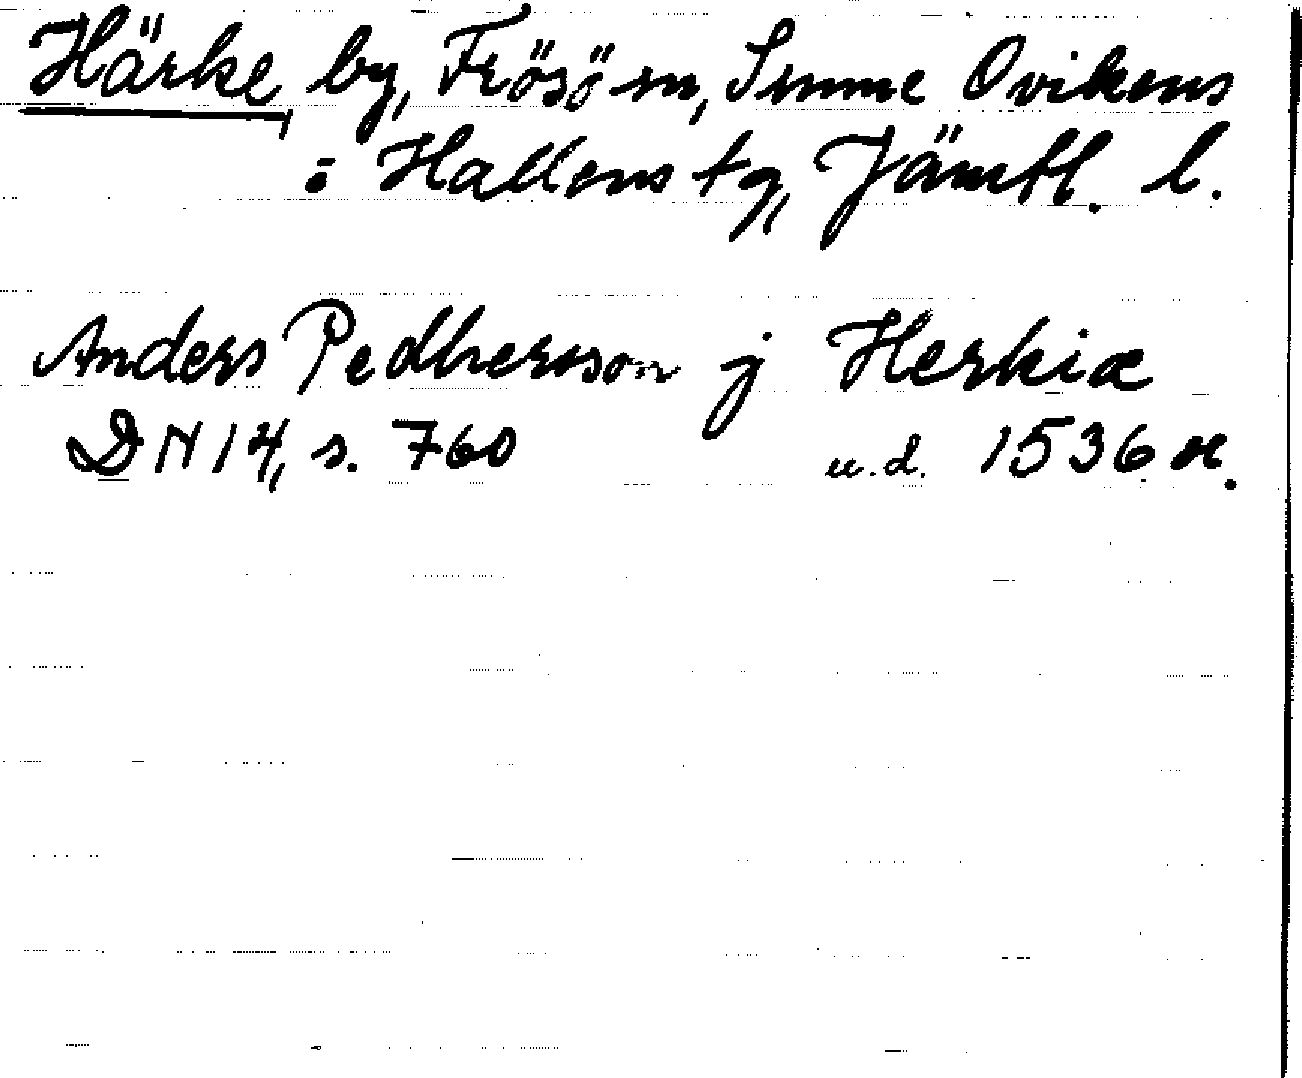 Härke by, Frösö sn, Sunne Ovikens
: Hallens tg, Jämtl. l.
Anders Pedhersson j Herkiæ
DN 14, s. 760 u.d. 1536 or.